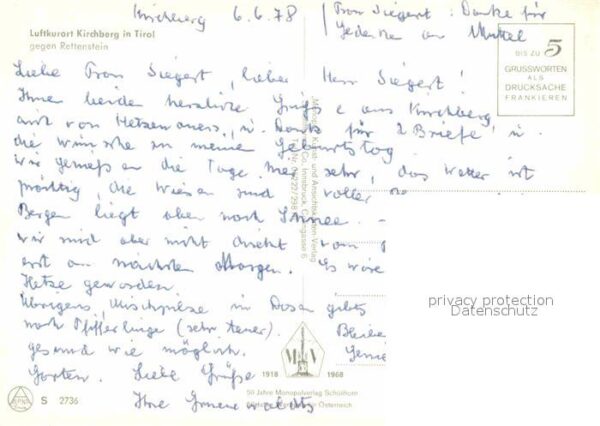 Kirchberg 6.6.78
Frau Siegert: Danke für
Gedenken an Muttel
Luftkurort Kirchberg in Tirol
gegen Rettenstein
BIS ZU 5
GRUSSWORTEN
ALS
DRUCKSACHE
FRANKIEREN
Liebe Frau Siegert, lieber Herr Siegert!
Ihnen beiden herzliche Grüße aus Kirchberg
auch von Hetzenauers, u. Dank für 2 Briefe u.
die Wünsche zu meinem Geburtstag.
Wir genießen die Tage hier sehr, das Wetter ist
prächtig, die Wiesen sind voller
Bergen liegt oben noch Schnee. -
wir sind aber nicht direkt vom
erst am nächsten Morgen. Es wäre
Hetze geworden.
Übrigens, Mischpilze in Dosen gibts
noch Pfifferlinge (sehr teuer). Bleiben
gesund wie möglich. Genie
Garten. Liebe Grüße
Ihre Grunewalds
Monopol Kunst- und Ansichtskarten-Verlag
MV
1918 1968
50 Jahre Monopolverlag Schöllhorn
Österreich
S 2736
privacy protection
Datenschutz